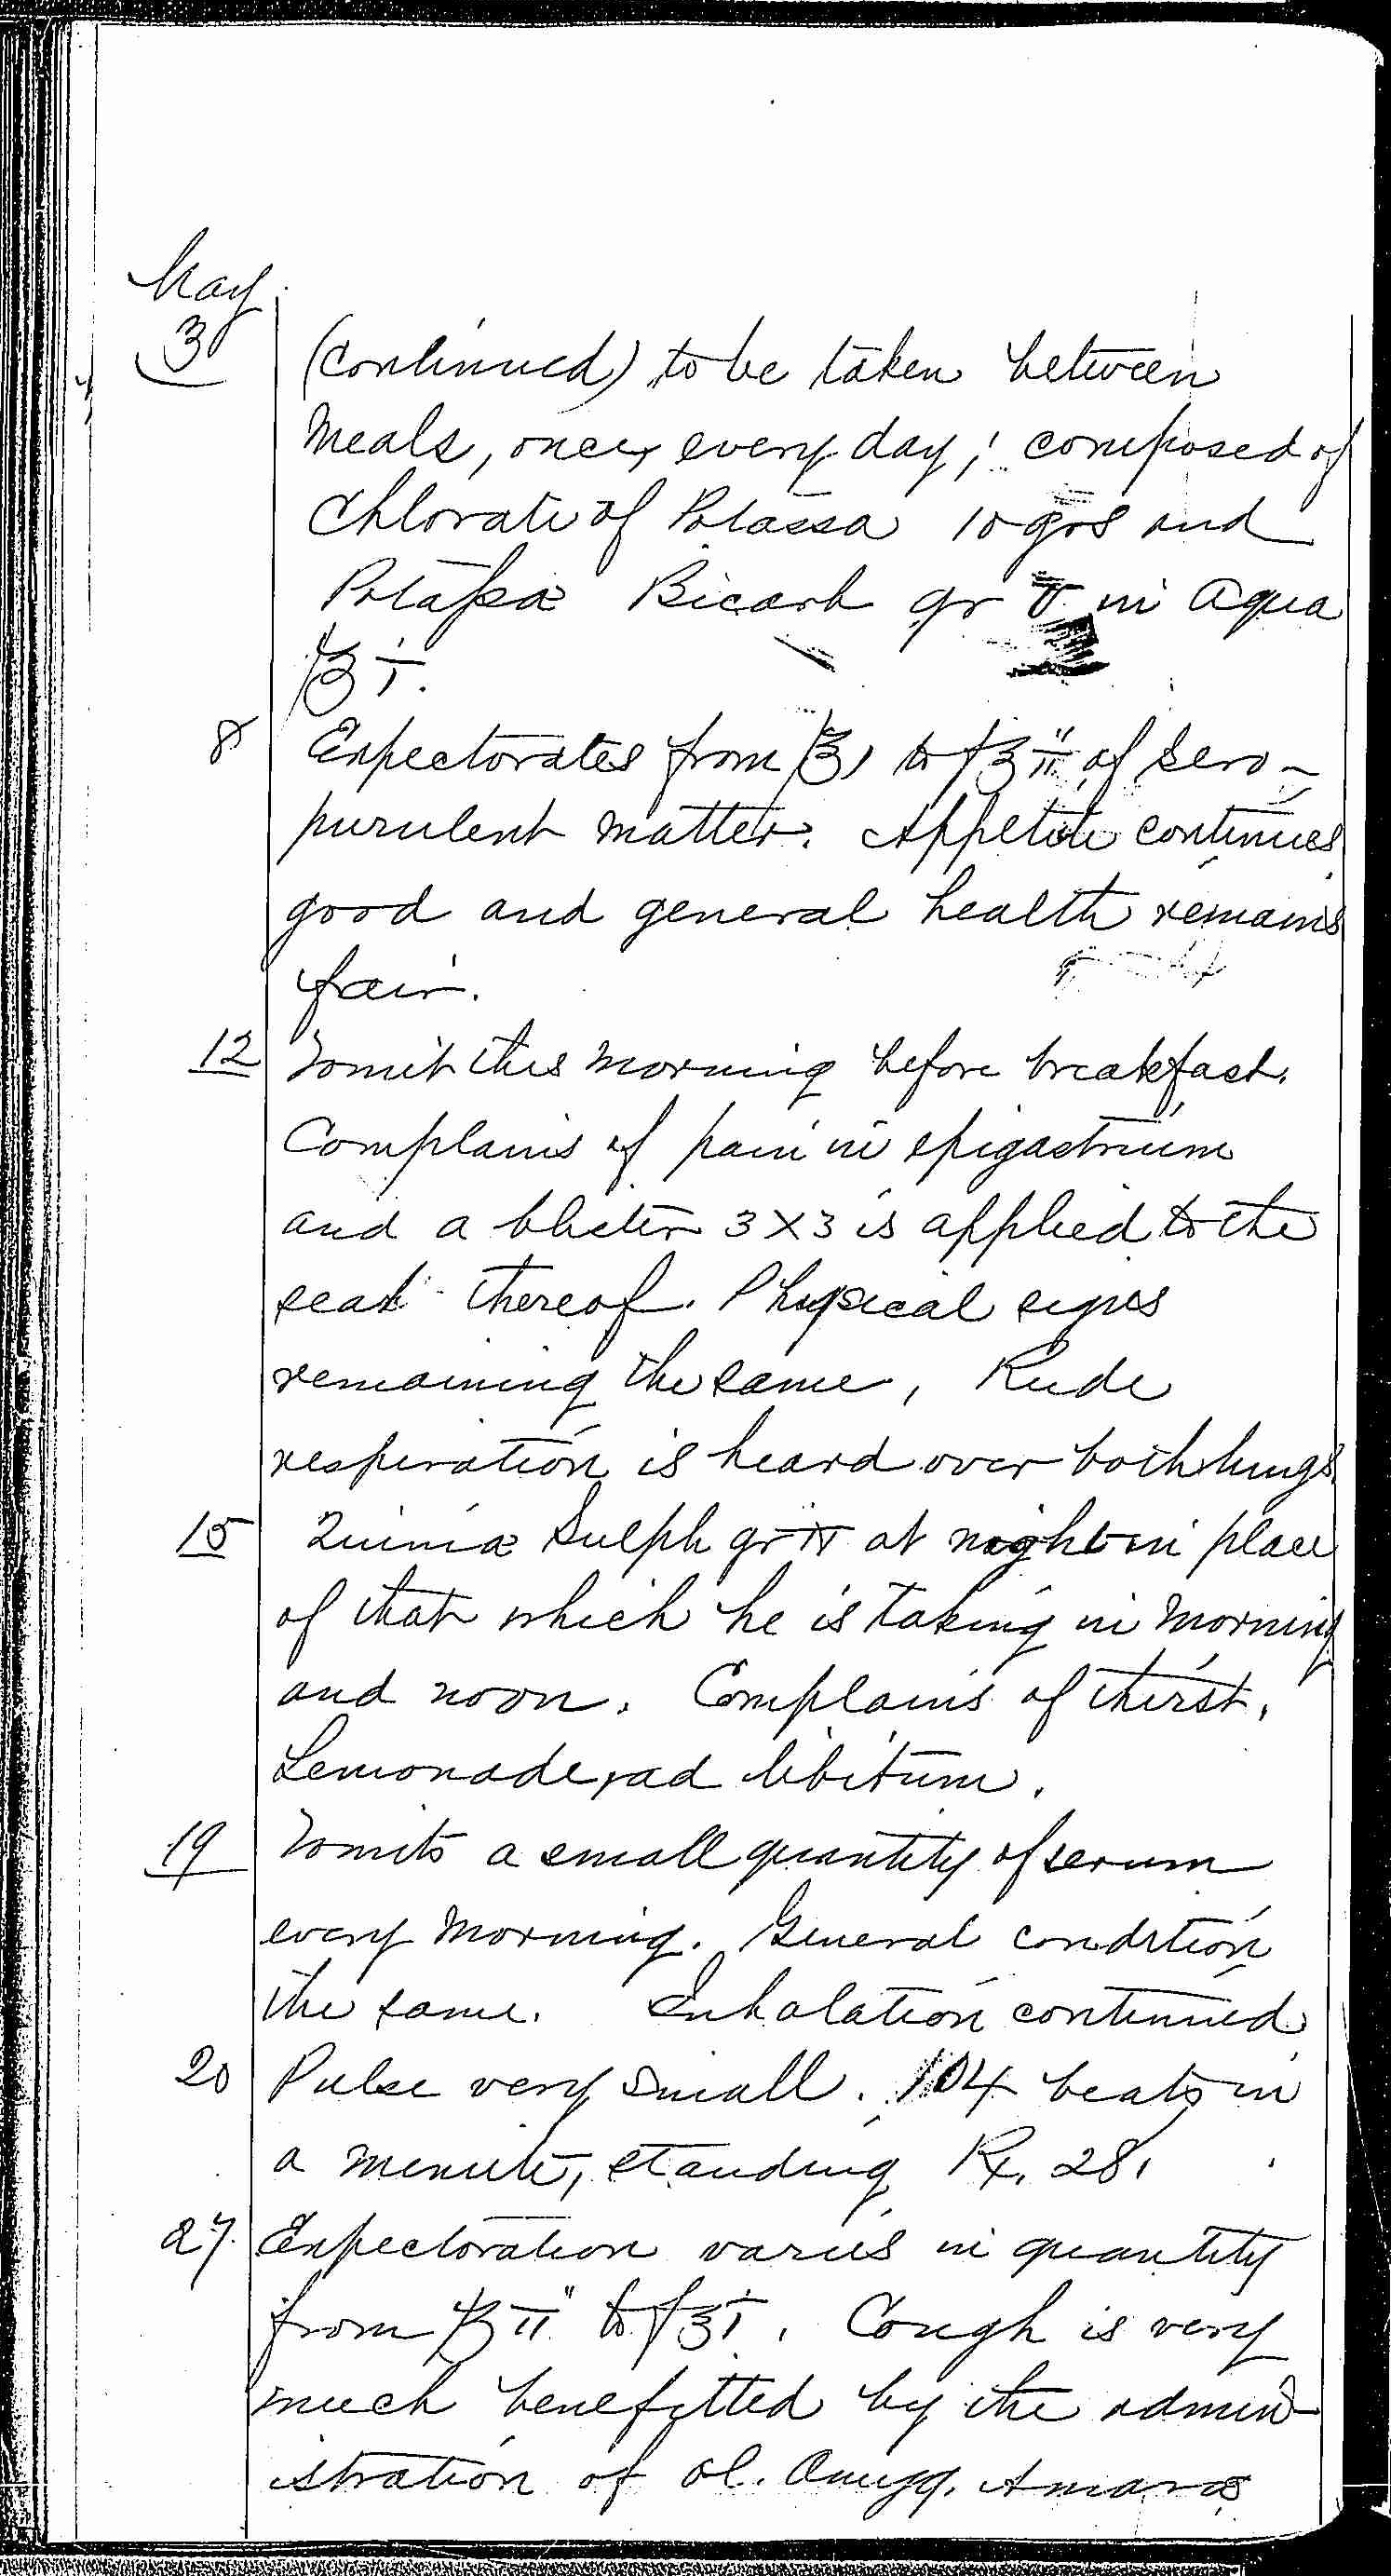 May
3 (continued) to be taken between
meals, once, every day; composed of
Chlorate of Potassa 10 grs and
Potassæ Bicarb gr V in Aqua
f℥ i.
8 Expectorates from f℥ i to f℥ ii of sero-
purulent matter. Appetite continues
good and general health remains
fair.
12 Vomit this morning before breakfast.
Complains of pain in epigastrium
and a blister 3 X 3 is applied to the
seat thereof. Physical signs
remaining the same, Rude
respiration is heard over both lungs.
15 Quiniæ Sulph gr at night in place
of that which he is taking in morning
and noon. Complains of thirst.
Lemonade, ad libitum.
19 Vomits a small quantity of serum
every morning. General condition
the same. Inhalation continued
20 Pulse very small. 104 beats in
a minute, standing R. 28.
27. Expectoration varies in quantity
from f℥ ii to f℥ i. Cough is very
much benefitted by the admin-
istration of ol. Amygg. Amaras